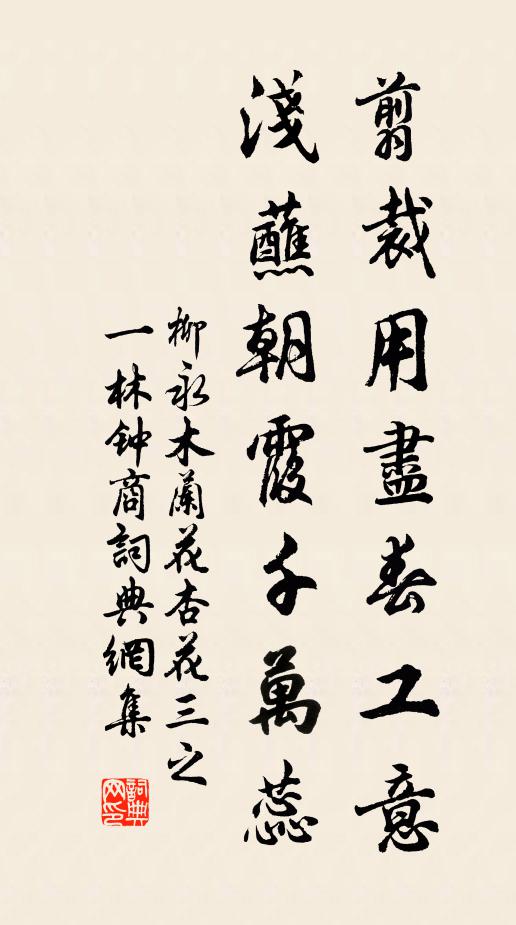 剪裁用盡春工意
淺蘸朝霞千萬蕊
柳永木蘭花杏花三之
一林钟商詞典網集
詞典
网印